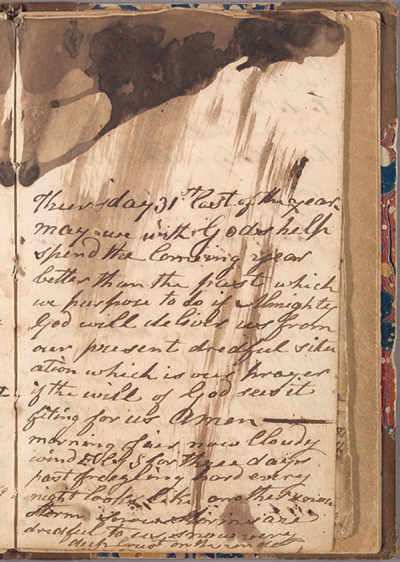 Thursday 31st last of the year
may we with Gods help
spend the Comeing year
better than the past which
we purpose to do if Almighty
God will deliver us from
our present dredful situ
ation which is our prayer
if the will of God sees it
fiting for us Amen ——
morning fair now Cloudy
wind E by S for three days
past freezeing hard every
night looks like another snow
storm Snow Storms are
dredful to us snow very
deep Crust on the